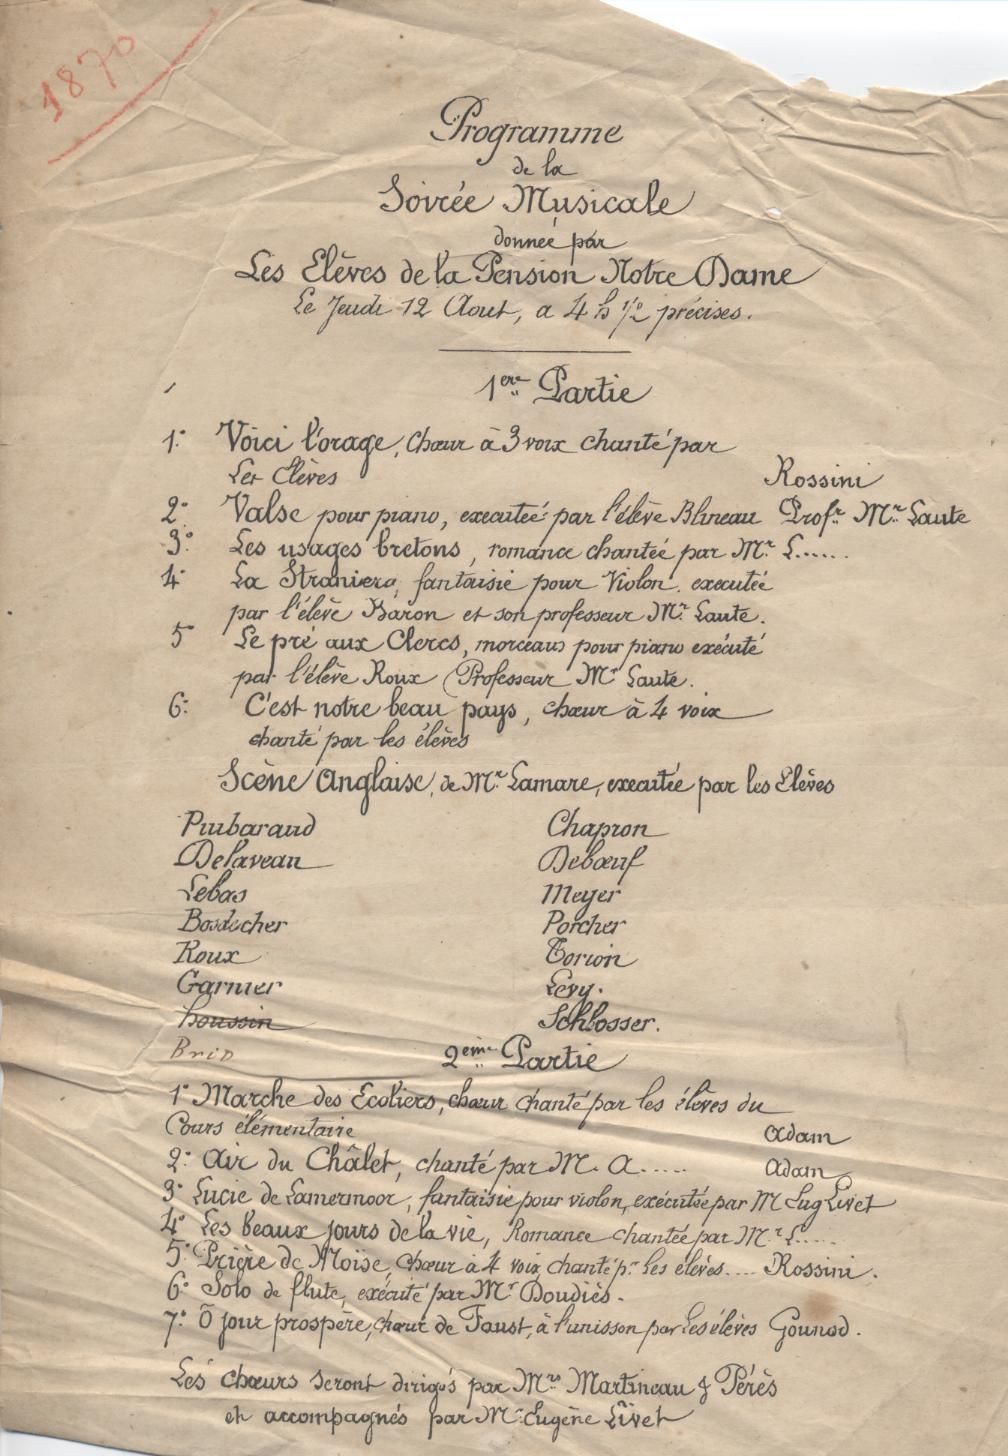 1870
Programme
de la
Soirée Musicale
donneé par
Les Elèves de la Pension Notre Dame
Le Jeudi 12 Aout, a 4 h 1/2 précises.
1ere Partie
1° Voici l'orage, chœur à 3 voix chanté par
Les Elèves Rossini
2° Valse pour piano, executeé par l'élève Blineau Profr Mr Laute
3° Les usages bretons, romance chantée par Mr L......
4° La Straniera, fantaisie pour Violon executée
par l'élève Baron et son professeur Mr Laute.
5° Le pré aux Clercs, morceau pour piano exécuté
par l'élève Roux (Professeur Mr Laute.
6° C'est notre beau pays, chœur à 4 voix
chanté par les élèves
Scène Anglaise, de Mr Lamare, executée par les Elèves
Pinbaraud Chapron
Delaveau Debœuf
Lebas Meyer
Bosdecher Porcher
Roux Torion
Garnier Levy.
houssin Schlosser.
Brid
2eme Partie
1° Marche des Ecoliers, chœur chanté par les élèves du
Cours élémentaire Adam
2° Air du Châlet, chanté par M. A..... Adam
3° Lucie de Lamermoor, fantaisie pour violon, exécutée par M Eug Livet
4° Les beaux jours de la vie, Romance chantée par Mr L.....
5° Prière de Moïse, chœur à 4 voix, chanté pr les elèves.... Rossini.
6° Solo de flute, exécuté par Mr Doudiès.
7° Ô jour prospère, chœur de Faust, à l'unisson par les élèves Gounod.
Les chœurs seront dirigés par Mrs Martineau & Pérès
et accompagnés par Mr Eugène Livet